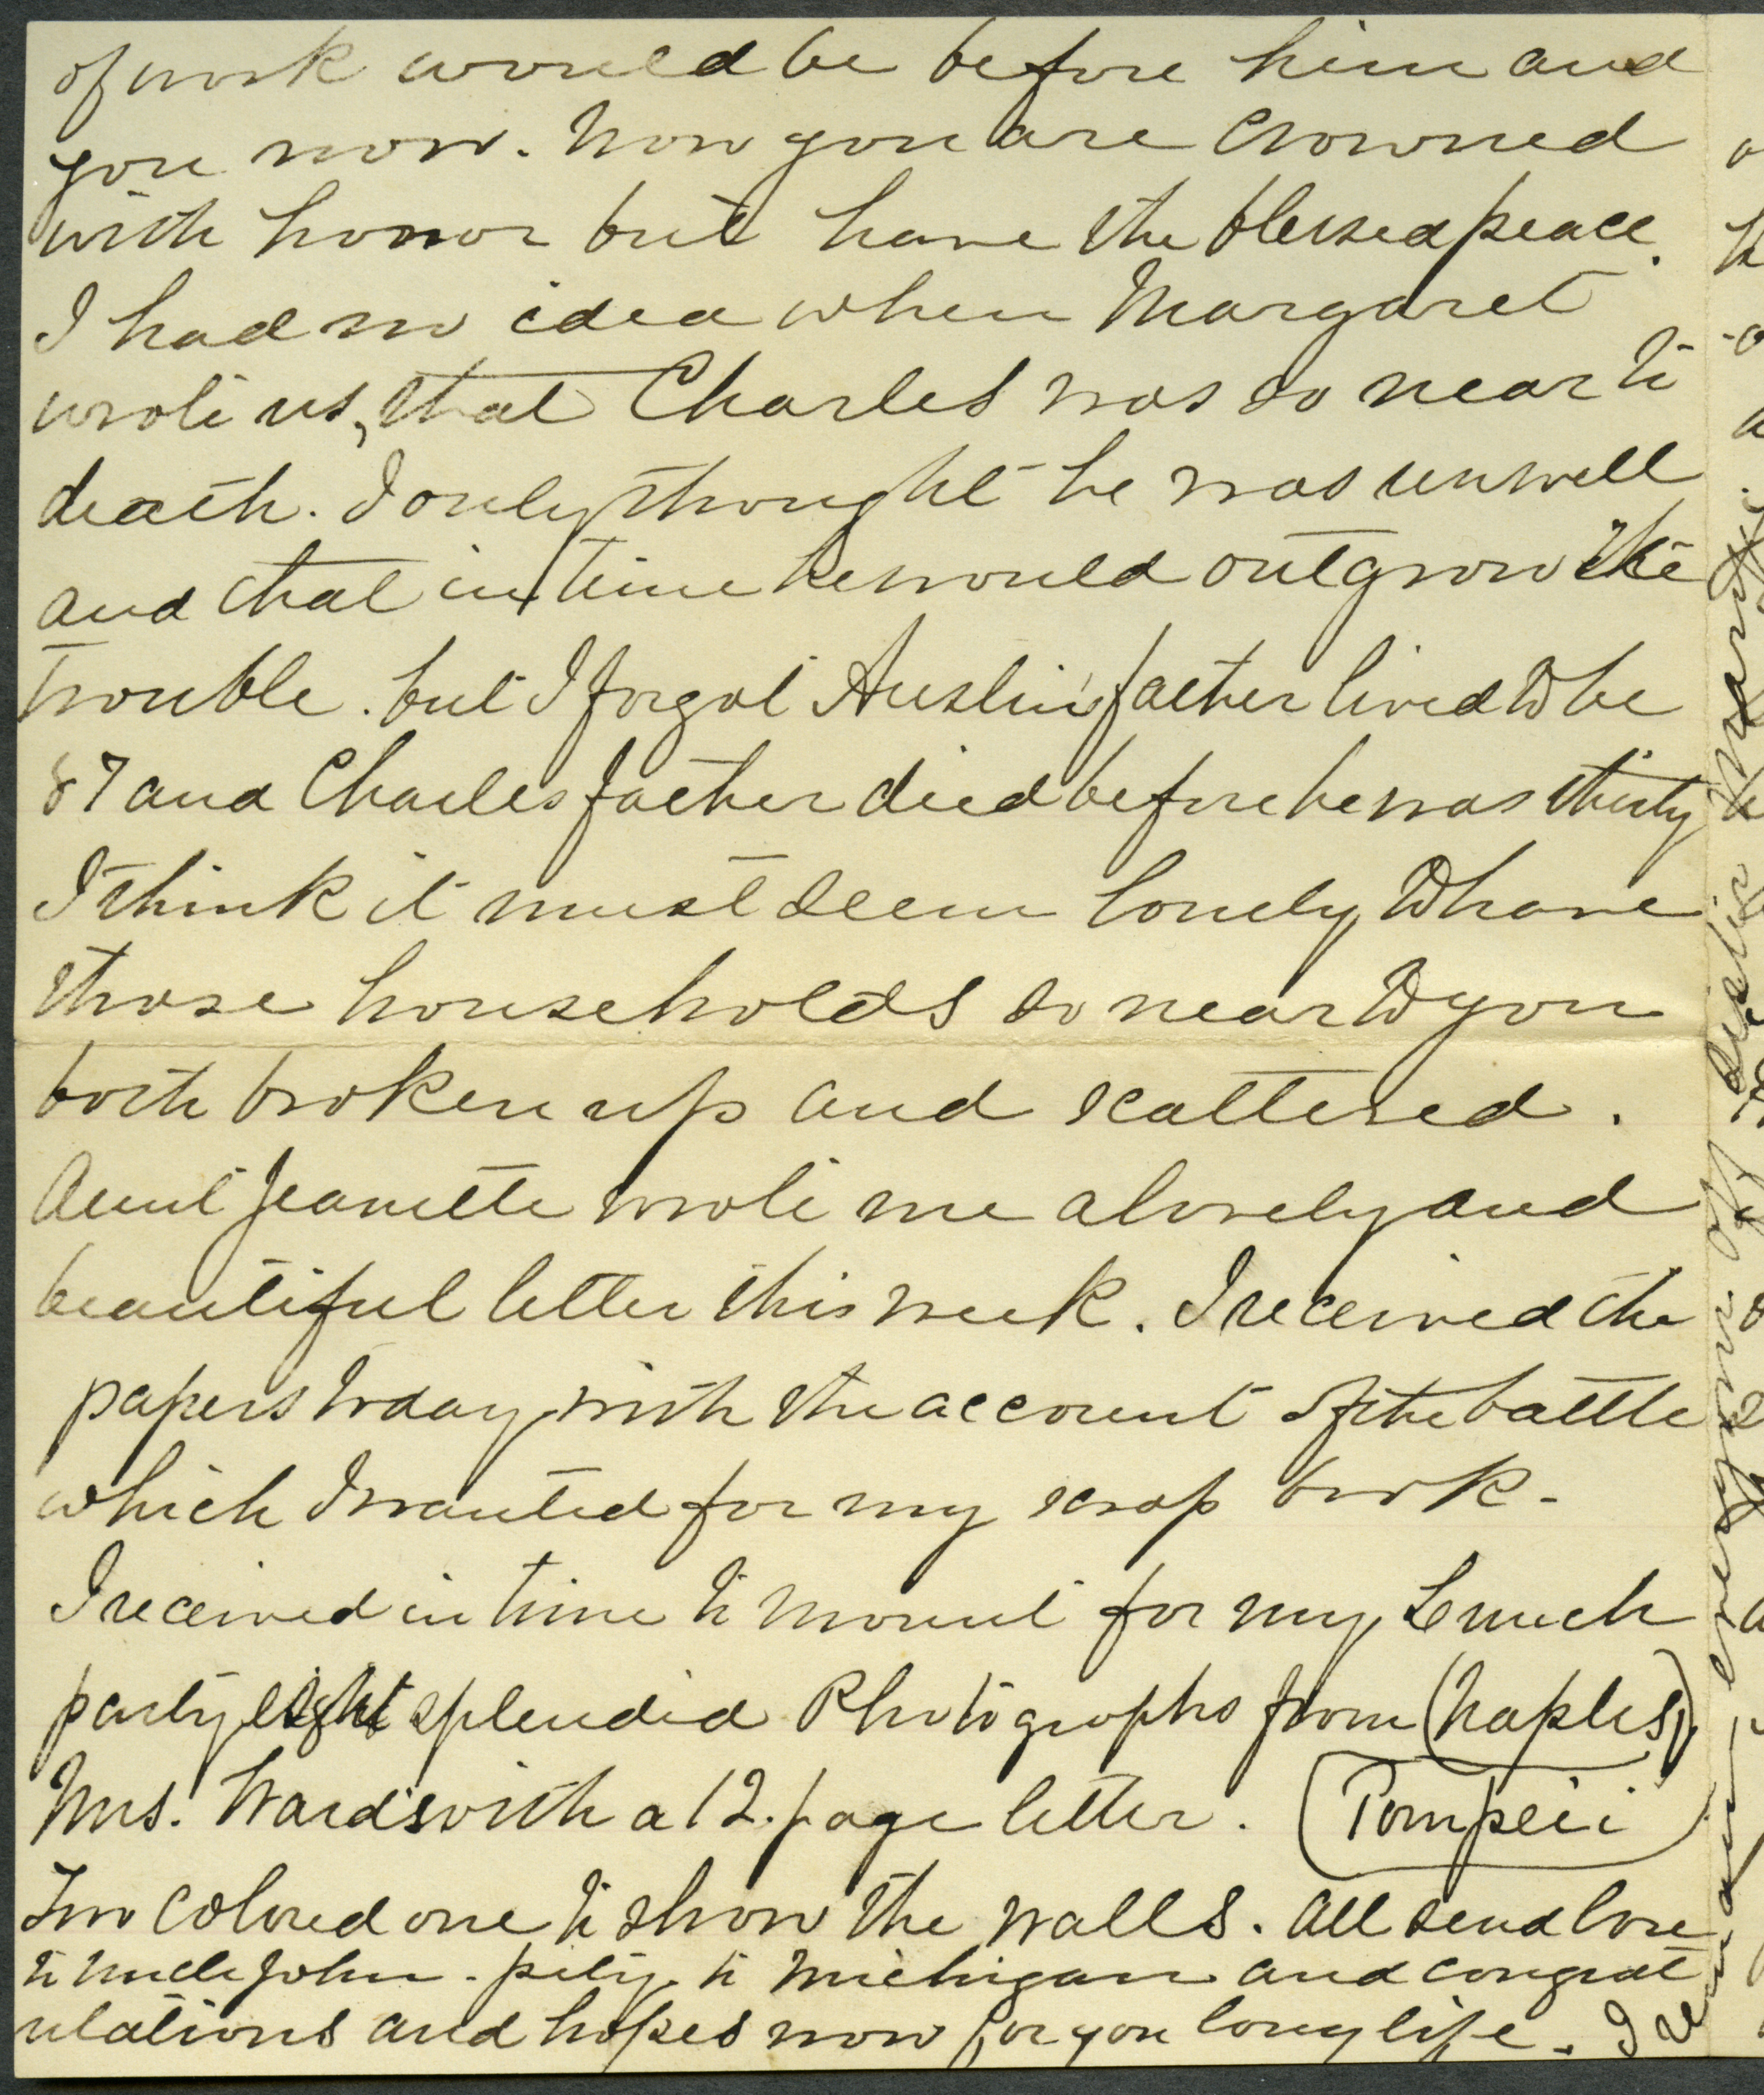 of work would be before him and
you now. Now you are crowned
with honor but have the blessed peace.
I had no idea when Margaret
wrote us, that Charles was so near to
death. I only thought he was unwell
and that in time he would outgrow the
trouble. but I forgot Austin's father lived to be
87 and Charles father died before he was thirty
I think it must seem lonely to have
those households so near to you
both broken up and scattered.
Aunt Jeanette wrote me a lovely and
beautiful letter this week. I received the
papers today with the account of the battle
which I wanted for my scrap book-
I received in time to mount for my Lunch
party eight splendid Photographs from (Naples)
Mrs. Wards with a 12 page letter. (Pompeii)
Two colored one to show the walls. All send love
to Uncle John. pity to Michigan and congrat
ulations and hopes now for you long life. I
remain every your off sister Martha